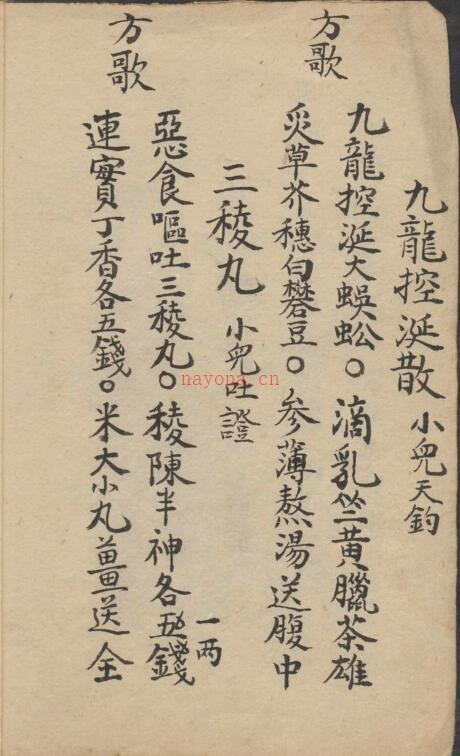 九龍控涎散 小兒天釣
方歌 九龍控涎大蜈蚣。滴乳竺黃臘茶雄
炙草芥穗白礬豆。参薄熬湯送腹中
三稜丸 小兒吐證
方歌 惡食嘔吐三稜丸。稜陳半神各一两
連實丁香各五錢。米大小丸薑送全
nayona.cn